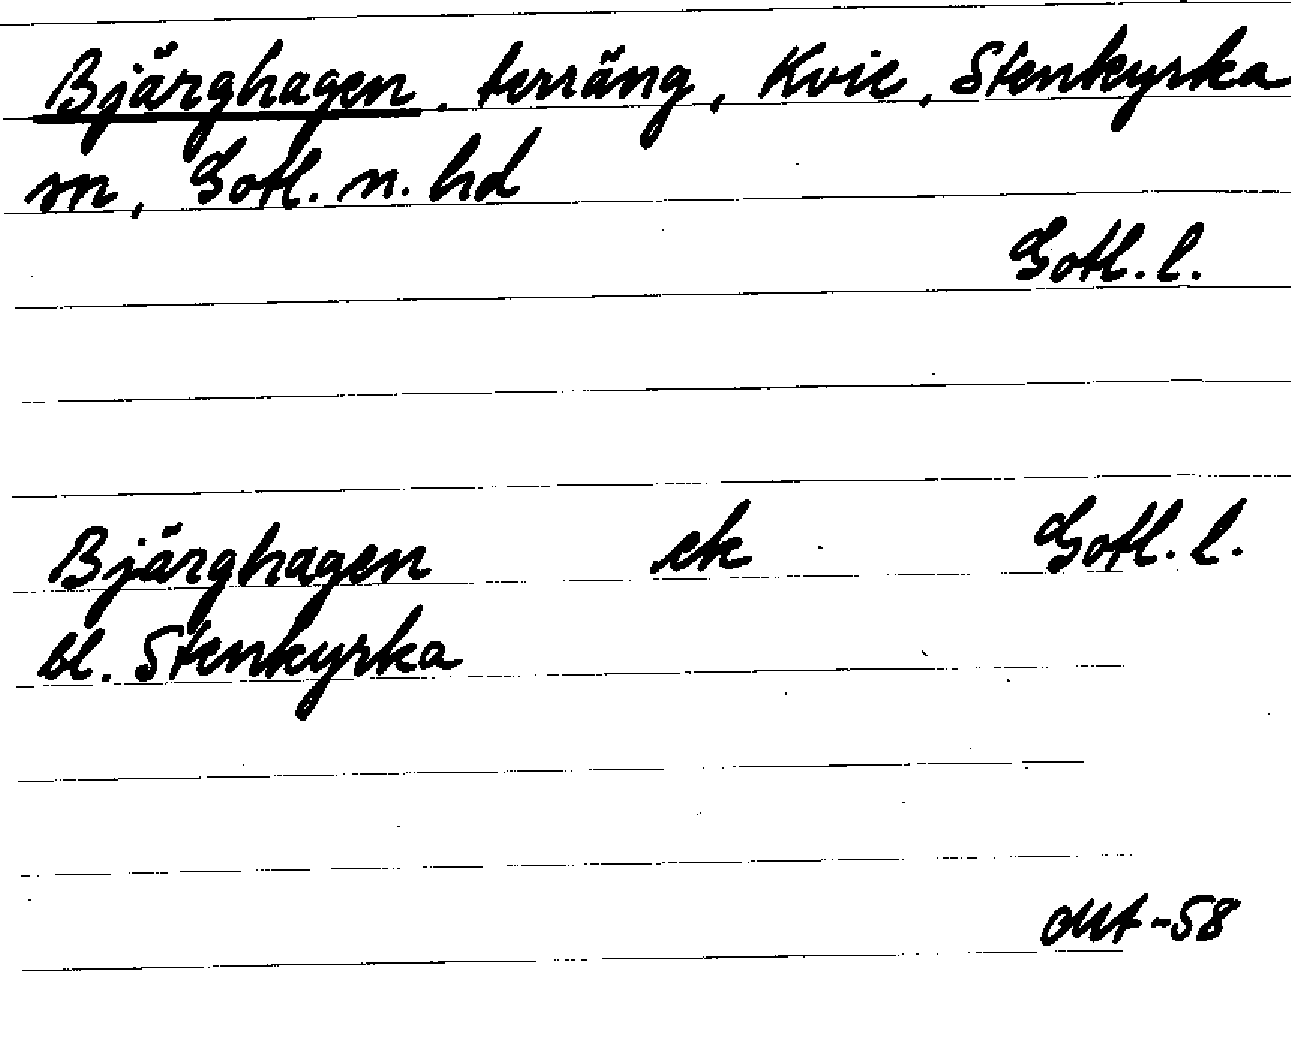 Bjärghagen, terräng, Kvie, Stenkyrka
sn, Gotl. n. hd
Gotl. l.
Bjärghagen ek Gotl. l.
bl. Stenkyrka
okt-58